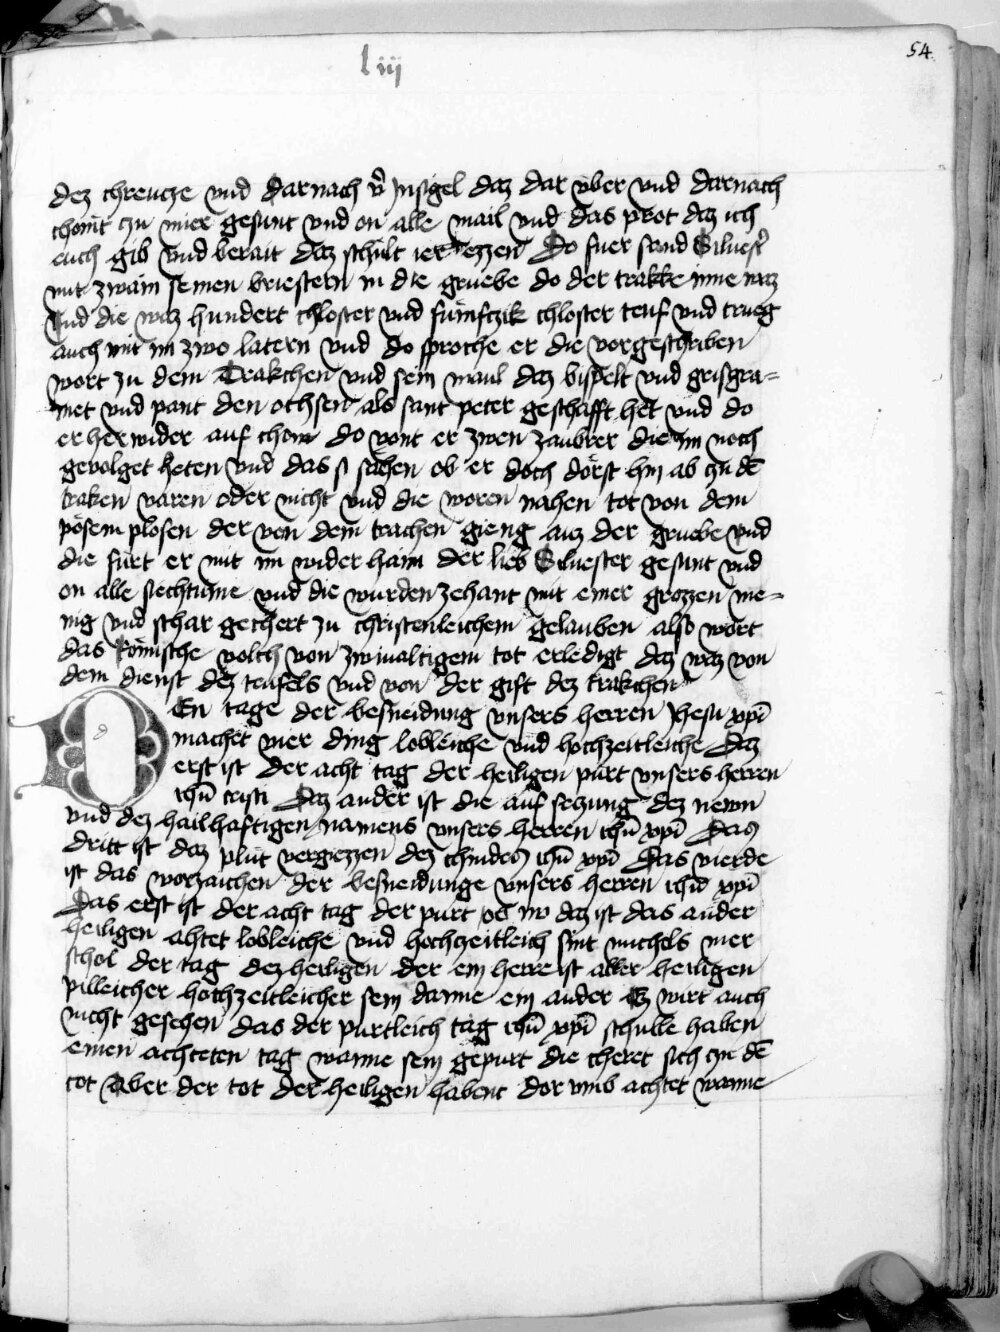 54
liij
dez chreucze vnd darnach v̄ Insigel daz dar vber vnd darnach
chomt czu mier gesunt vnd on alle mail vnd das prot daz ich
euch gib vnd berait daz schult ier ezzen Do fuer sand Siluest̄
mit zwain seinen briestern in die gruebe do der trakke inne waz
Vnd die waz hundert chloster vnd fumfczik chloster teuf vnd trueg
auch mit im zwo latern vnd do sproche er die vorgeschriben
wort zu dem Trakchen vnd sein maul daz bispelt vnd grisgra-
met vnd pant den othsen als sant peter geschafft het vnd do
er her wider auf chom do vont er zwen zaubrer die im noch
geuolget heten vnd das si sachen ob er doch dorst hin ab czu dē
traken varen oder nicht vnd die woren nahen tot von dem
posem plosen der von dem trachen gieng auz der gruebe vnd
die furt er mit im wider haim der lieb Siluester gesunt vnd
on alle siechtume vnd die wurden zehant mit einer grozzen me-
nig vnd schar gechert zu christenleichem gelauben also wort
das Romische volch von zwiualtigem tot erledigt daz waz von
dem dienst dez teufels vnd von der gift dez trakchen
En tage der besneidung vnsers herren Jhesu xp̄i
machet vier ding lobleiche vnd hochzeitleiche Daz
erst ist der acht tag der heiligen purt vnsers herren
ihū cristi Daz ander ist die auf seczung dez newn
vnd dez hailhaftigen namens vnsers herren ihū xp̄i Das
dritt ist daz plut vergezzen dez chindes ihū xp̄i Das vierde
ist das worzaichen der besneidunge vnsers herren ihū xp̄i
Das erst ist der acht tag der purt ob nv daz ist das ander
heiligen achtet lobleiche vnd hochzeitleich sint michels mer
schol der tag dez heiligen der ein herre ist aller heiligen
pilleicher hochzeitleicher sein danne ein ander Ez wirt auch
nicht gesehen das der purtleich tag ihū xp̄i schulle haben
einen achteten tag wanne sein gepurt die cheret sich czu dē
tot Aber der tot der heiligen habent dor vmb achtet wanne